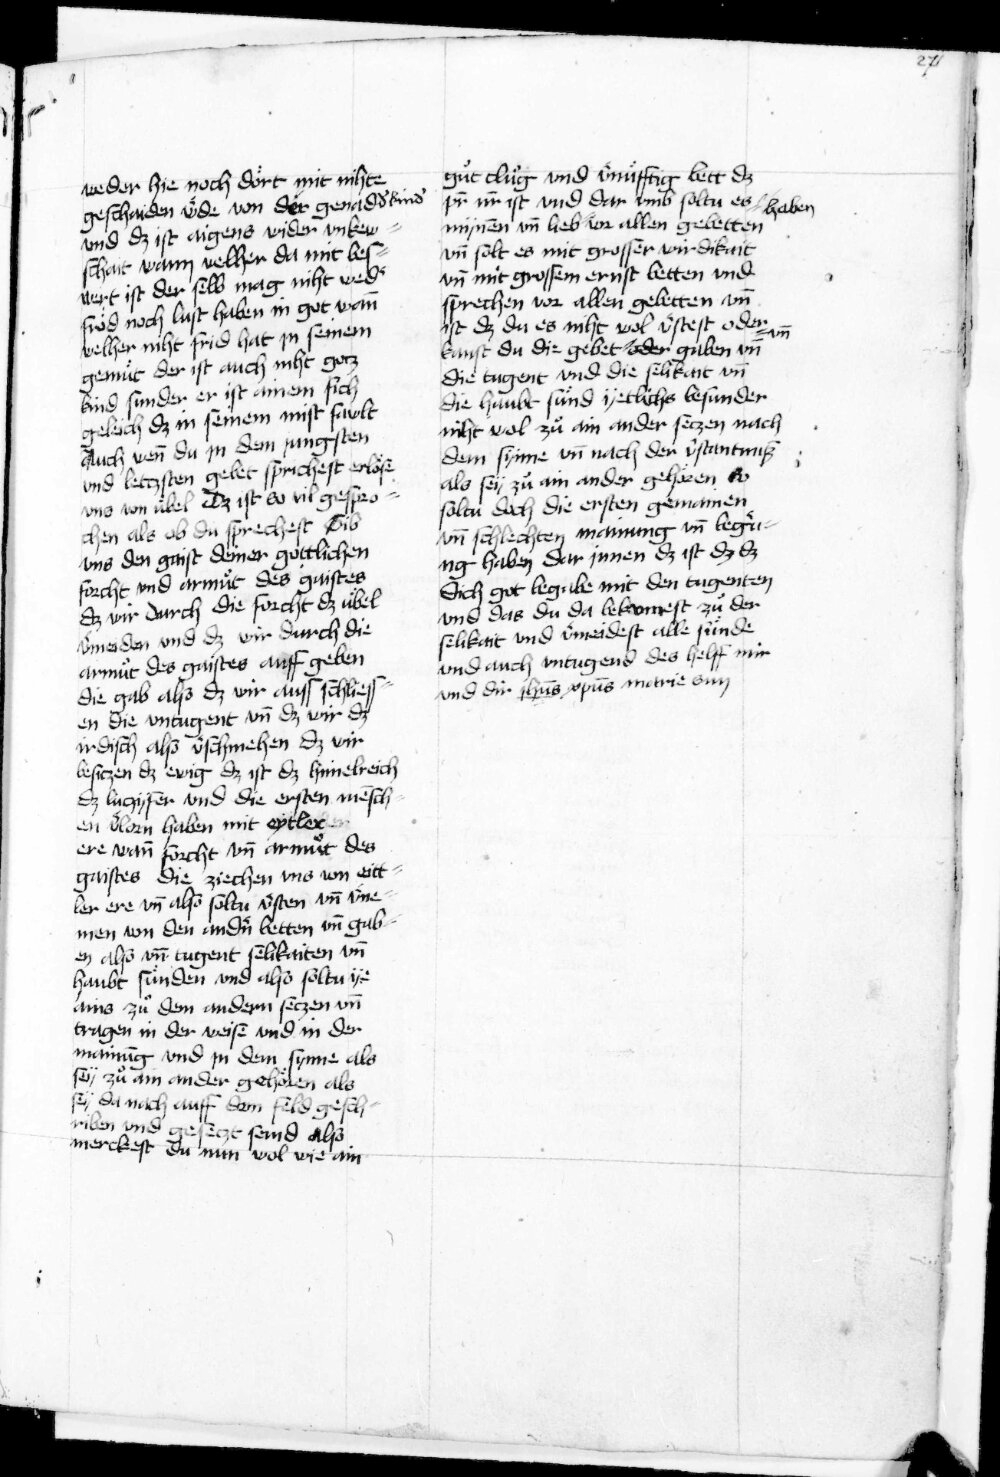 271
weder hie noch dört mit nihte
geschaiden v̈de von der genad d' kind'
vnd dz ist aigens wider vnkew-
schait wann welher da mit bes-
wert ist der selb mag niht wed'
fröd noch lust haben in got wan̄
welher niht frid hat in seinem
gemüt der ist auch niht gotz
kind sunder er ist ainem sich
geleich dz in seinem mist fault
Auch wen̄ du jn dem jungsten
vnd letzsten gebet sprichest erlöse
vns von übel Dz ist so vil gespro-
chen als ob du sprechest Gib
vns den gaist deiner gottlichen
forcht vnd armůt des gaistes
dz wir durch die forcht dz übel
v̈meiden vnd dz wir durch die
armůt des gaistes auff geben
die gab also dz wir auss schliess-
en die vntugent vn̄ dz wir dz
irdisch also v̈schmehen dz wir
besiczen dz ewig dz ist dz himelreich
dz luczifer vnd die ersten mensch-
en v̈lorn haben mit eytler
ere wan̄ forcht vn̄ armůt des
gaistes die ziechen vns von eitt-
ler ere vn̄ also soltu v̈sten vn̄ v̈ne-
men von den andn̄ betten vn̄ gab-
en also vn̄ tugent selikaiten vn̄
haubt sünden vnd also soltu ye
ains zů dem andern seczen vn̄
tragen in der weise vnd in der
mainūg vnd jn dem synne als
sey zů ain ander gehören als
sey da nach auff dem feld gesch-
riben vnd geseczt seind also
merckest du nun wol wie ain
gůt clůg vnd v̈nüfftig bett dz
pr̄ nr̄ ist vnd dar vmb soltu es haben
mynen vn̄ lieb vor allen gebetten
vn̄ solt es mit grosser wirdikait
vn̄ mit grossem ernst betten vnd
sprechen vor allen gebetten vn̄
ist dz du es niht wol v̈stest oder
kanst du die gebet oder gaben vn̄ vn̄
die tugent vnd die selikait vn̄
die haubt sünd yetlichs besunder
niht wol zů ain ander seczen nach
dem synne vn̄ nach der v̈stantnuß
als sey zů ain ander gehören so
soltu doch die ersten gemainen
vn̄ schlechten mainung vn̄ begir-
ng haben dar jnnen dz ist dz dz
dich got begabe mit den tugenten
vnd das du da bekomest zů der
selikait vnd v̈meidest alle sünde
vnd auch vntugend des helff mir
vnd dir jhūs xpūs marie sun